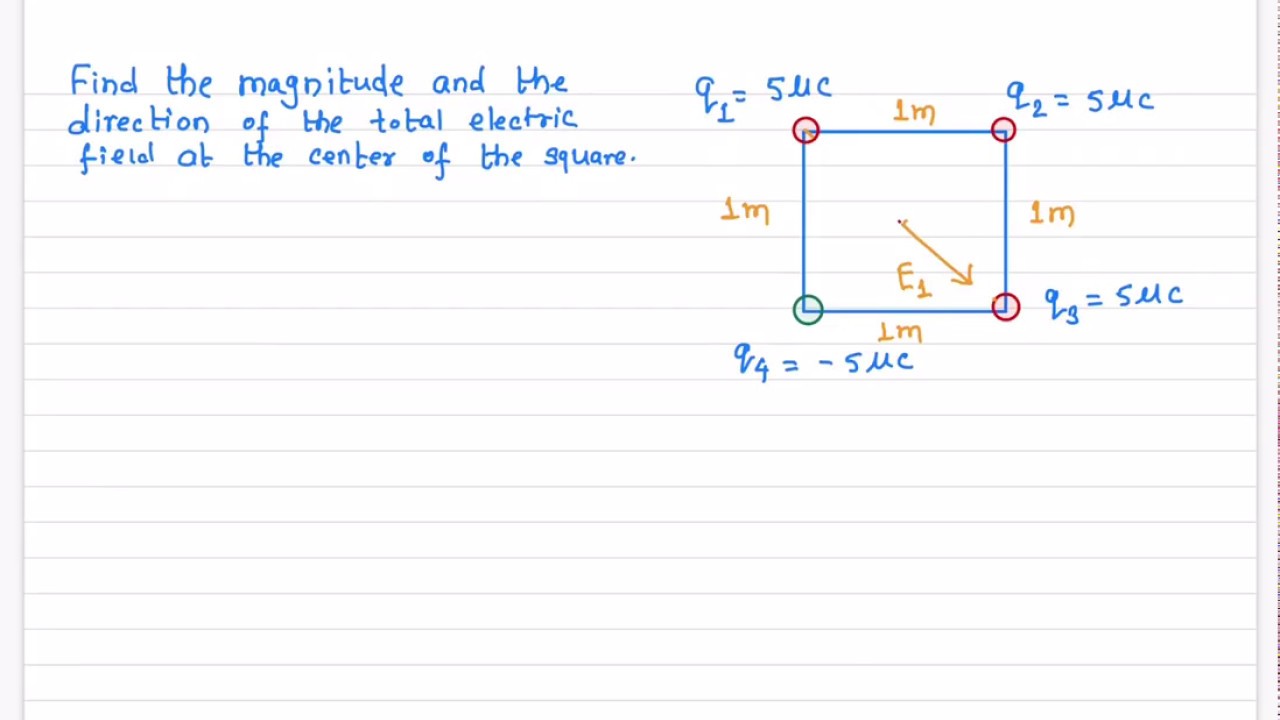 Find the magnitude and the
direction of the total electric
field at the center of the square.
q₁ = 5μc
1m
q₂ = 5μc
1m
1m
E₁
q₃ = 5μc
1m
q₄ = - 5μc